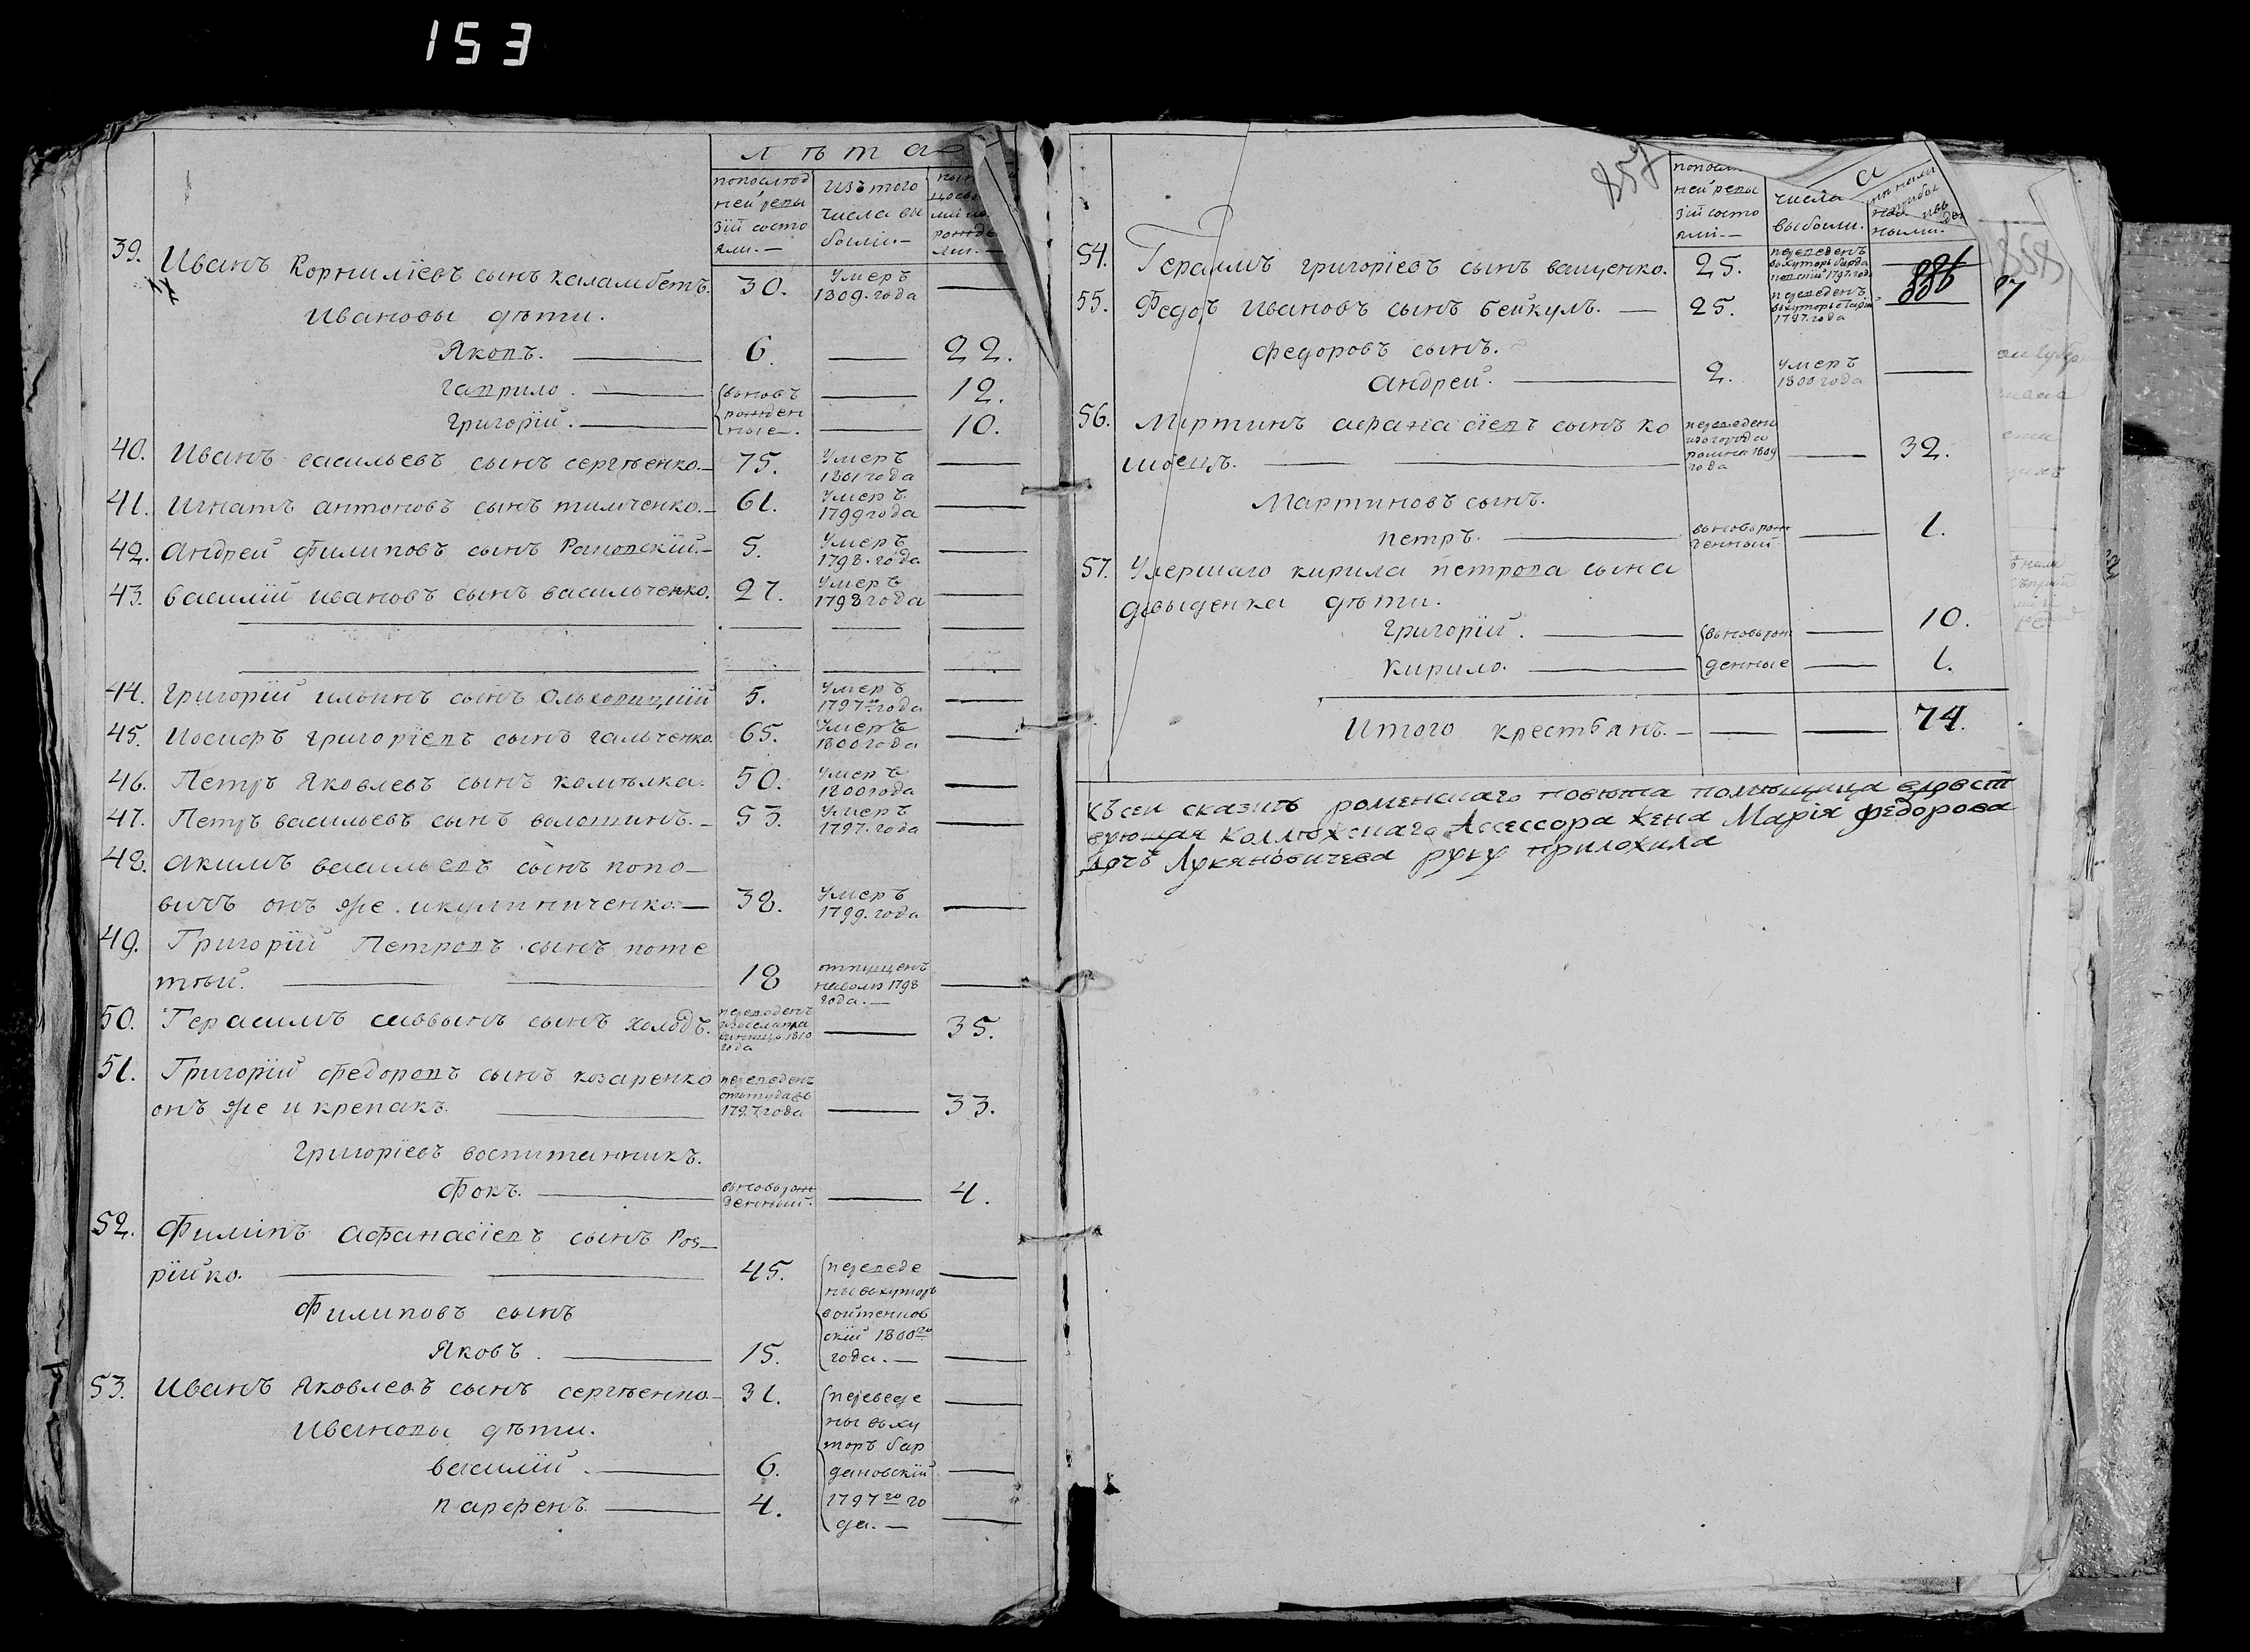 153
лѣта
попослѣд
ней реви
зіи состо
яли.—
изътого
числа вы
были.—
39. Иванъ Корнилїевъ сынъ каламбетъ. 30. Умеръ
1809. года —
Ивановы дѣти.
Яковъ. — 6. — 22.
гаврило. — вновъ — 12.
Григорїй. — рожден
ные. — 10.
40. Иванъ васильевъ сынъ сергѣенко.— 75. Умеръ
1801 года —
41. Игнатъ антоновъ сынъ тимченко.— 61. Умеръ
1799 года —
42. андрей филиповъ сынъ Рановскїй.— 5. Умеръ
1798. года —
43. василїй ивановъ сынъ васильченко. 27. Умеръ
1798 года —
44. григорїй ильинъ сынъ Ольховицкїй 5. Умеръ
1797го года —
45. Иосифъ григорїевъ сынъ гальченко. 65. Умеръ
1800 года —
46. Петръ Яковлевъ сынъ компѣлка. 50. Умеръ
1800 года —
47. Петръ васильевъ сынъ волошинъ.— 53. Умеръ
1797. года —
48. акимъ васильевъ сынъ попо—
вичъ онъ же икулиниченко.— 38. Умеръ
1799. года —
49. Григорїй Петровъ сынъ поте
тѣй. — 18 отпущенъ
наволю 1798
года.— —
50. Герасимъ саввынъ сынъ холодъ. переведенъ
1810
года — 35.
51. Григорїй федоровъ сынъ козаренко
онъ же и крепакъ. — переведенъ
оттуда въ
1797. года — 33.
Григорїевъ воспитанникъ.
Фокъ. — вновьрож
денный. — 4.
52. Филипъ афанасїевъ сынъ Роз—
рїйко. — 45. переведе
ны вхуторъ
войтенков
скїй 1800го
года.— —
Филиповъ сынъ
Яковъ. — 15. —
53. Иванъ Яковлевъ сынъ сергѣенко.— 31. переведе
ны въ ху
торъ бар
дановскїй
1797го го
да.— —
Ивановы дѣти.
василїй. — 6. —
парфенъ. — 4. —
857
858
886
ней реви
зїи состо
яли.—
числа
выбыли.
54. Герасимъ григорїевъ сынъ ващенко. 25. переведенъ
1797. года —
55. Федоръ Ивановъ сынъ бейкулъ. — 25. переведенъ
1797. года —
федоровъ сынъ.
андрей. — 2. Умеръ
1800 года —
56. Мартинъ афанасїевъ сынъ ко
швецъ. — переведенъ
изгорода
ромна 1809
года — 32.
Мартиновъ сынъ.
петръ. — вновьрож
денный — 1.
57. Умершаго кирила петрова сына
давыденка дѣти.
григорїй. — вновьрож — 10.
кирило. — денные — 1.
Итого крестьянъ.— — — 74.
Късей сказкѣ роменскаго повѣта помѣщица
Коллѣжскаго Ассессора жена Марія федорова
дочь Лукяновичева руку приложила